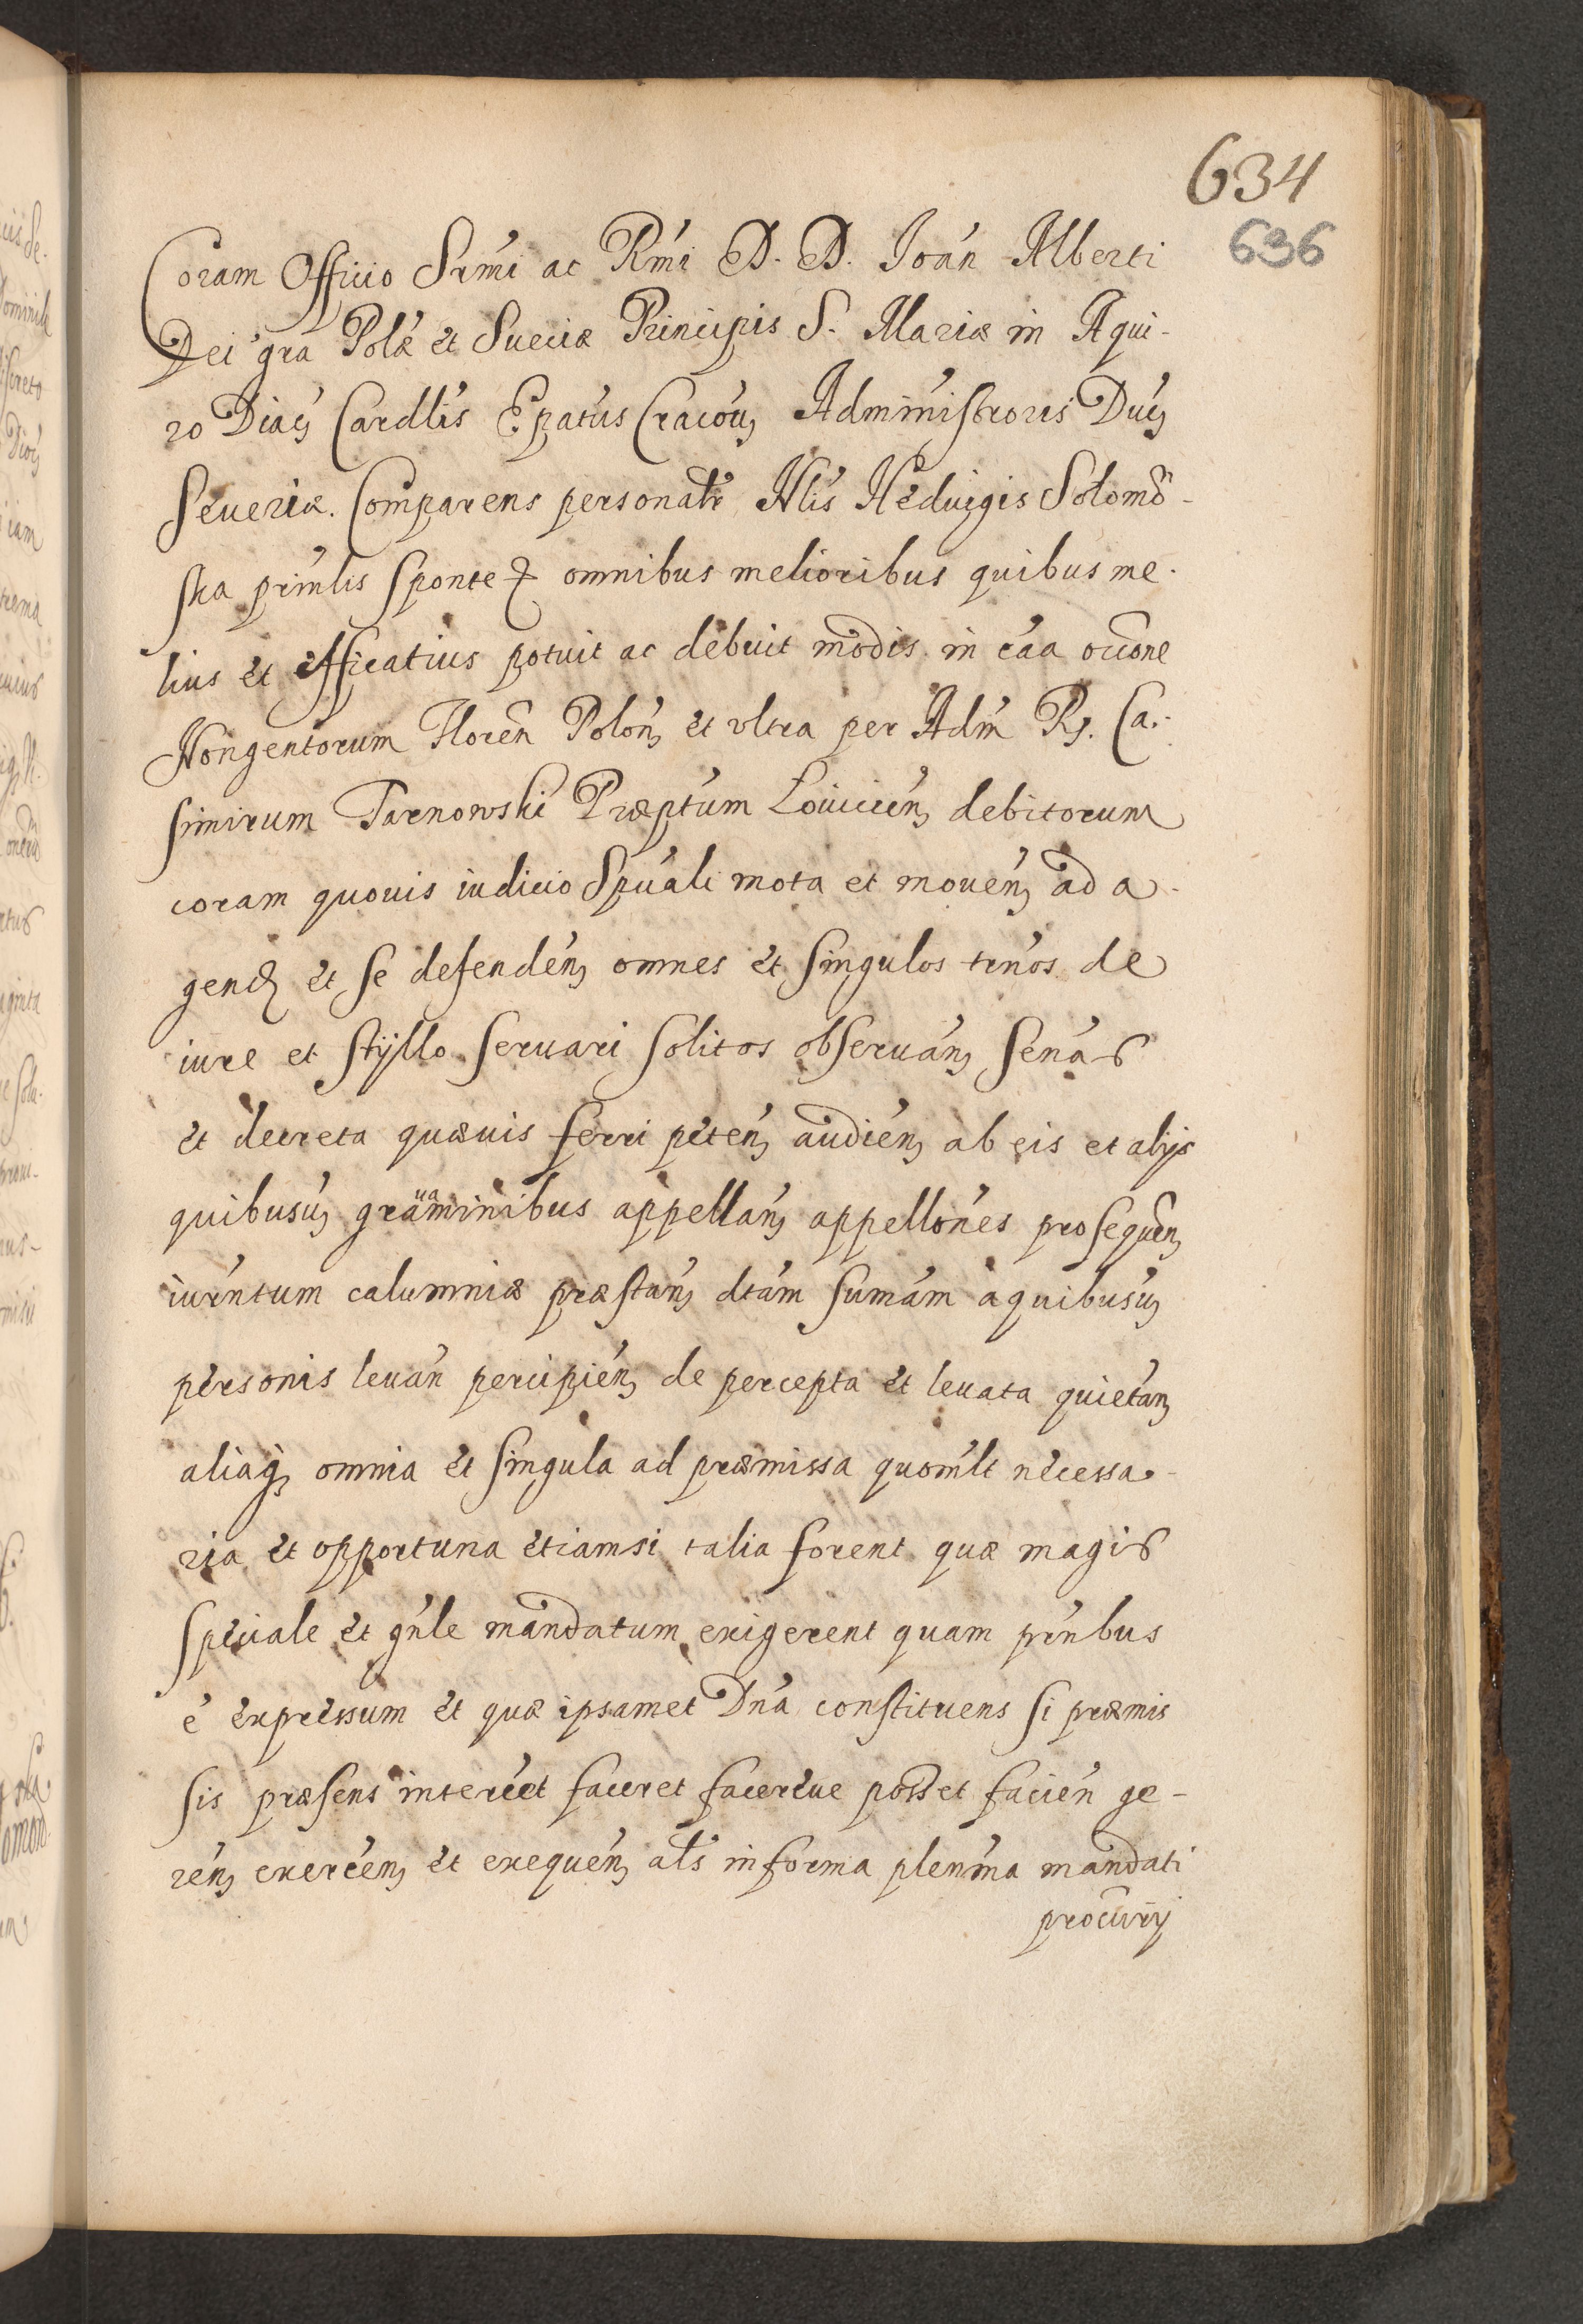 634
636
Coram Officio Srmi ac Rmi D. D. Joan Alberti
Dei gra Polæ et Sueciæ Principis S. Mariæ in Aqui-
ro Diac Cardlis Epatus Cracou Administroris Duc
Seueriæ. Comparens personalr Nlis Heduigis Solomo-
ska prinlis sponte & omnibus melioribus quibus me-
lius et efficatius potuit ac debuit modis in caa occone
Nongentorum Floren Polon et vltra per Adm R. Ca-
simirum Tarnowski Præptum Louicien debitorum
coram quouis iudicio Spuali mota et mouen ad a-
gend et se defenden omnes et singulos tenos de
iure et styllo seruari solitos obseruan senas
et decreta quæuis ferri peten audien ab eis et alijs
quibusuis grauaminibus appellan appellones prosequen
iurentum calumniæ præstan dtam sumam a quibusuis
personis leuan percipien de percepta et leuata quietan
aliaq omnia et singula ad præmissa quomlt necessa-
ria et opportuna etiamsi talia forent quæ magis
speciale et gnle mandatum exigerent quam pntibus
e expressum et quæ ipsamet Dna constituens si præmis
sis præsens interèet faceret facereue posset facien ge-
ren exercen et exequen als in forma plenma mandati
procurij